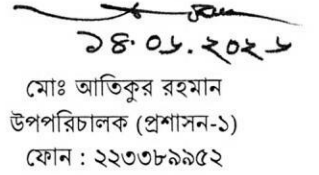 ১৪.০১.২০২৬
মোঃ আতিকুর রহমান
উপপরিচালক (প্রশাসন-১)
ফোন : ২২৩৩৮৯৯৫২